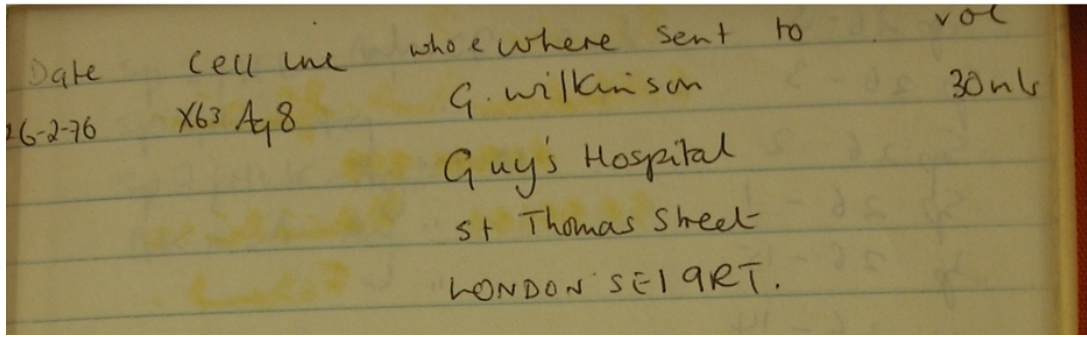 Date cell line who & where sent to vol
26-2-76 X63 Ag 8 G. Wilkinson 30 mls
Guy's Hospital
St Thomas Street
LONDON SE1 9RT.